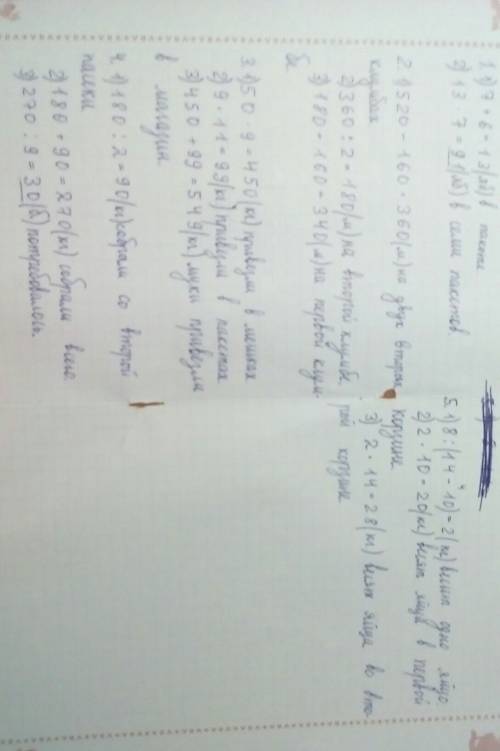 1. 1) 7 + 6 = 13 (яб) в пакете
2) 13 · 7 = 91 (яб) в семи пакетов
2. 1) 520 - 160 = 360 (м) на двух вторая
клумбах
2) 360 : 2 = 180 (м) на второй клумбе
3) 180 - 160 = 340 (м) на первой клум-
бе
3. 1) 50 · 9 = 450 (кг) привезли в мешках
2) 9 · 11 = 99 (кг) привезли в пакетах
3) 450 + 99 = 549 (кг) муки привезли
в магазин.
4. 1) 180 : 2 = 90 (кг) собрали со второй
пасеки
2) 180 + 90 = 270 (кг) собрали всего.
3) 270 : 9 = 30 (б) потребовалось.
5. 1) 8 : (14 - 10) = 2 (кг) весит одно яйцо
4
2) 2 · 10 = 20 (кг) весят яйца в первой
корзине
3) 2 · 14 = 28 (кг) весят яйца во вто-
рой корзине